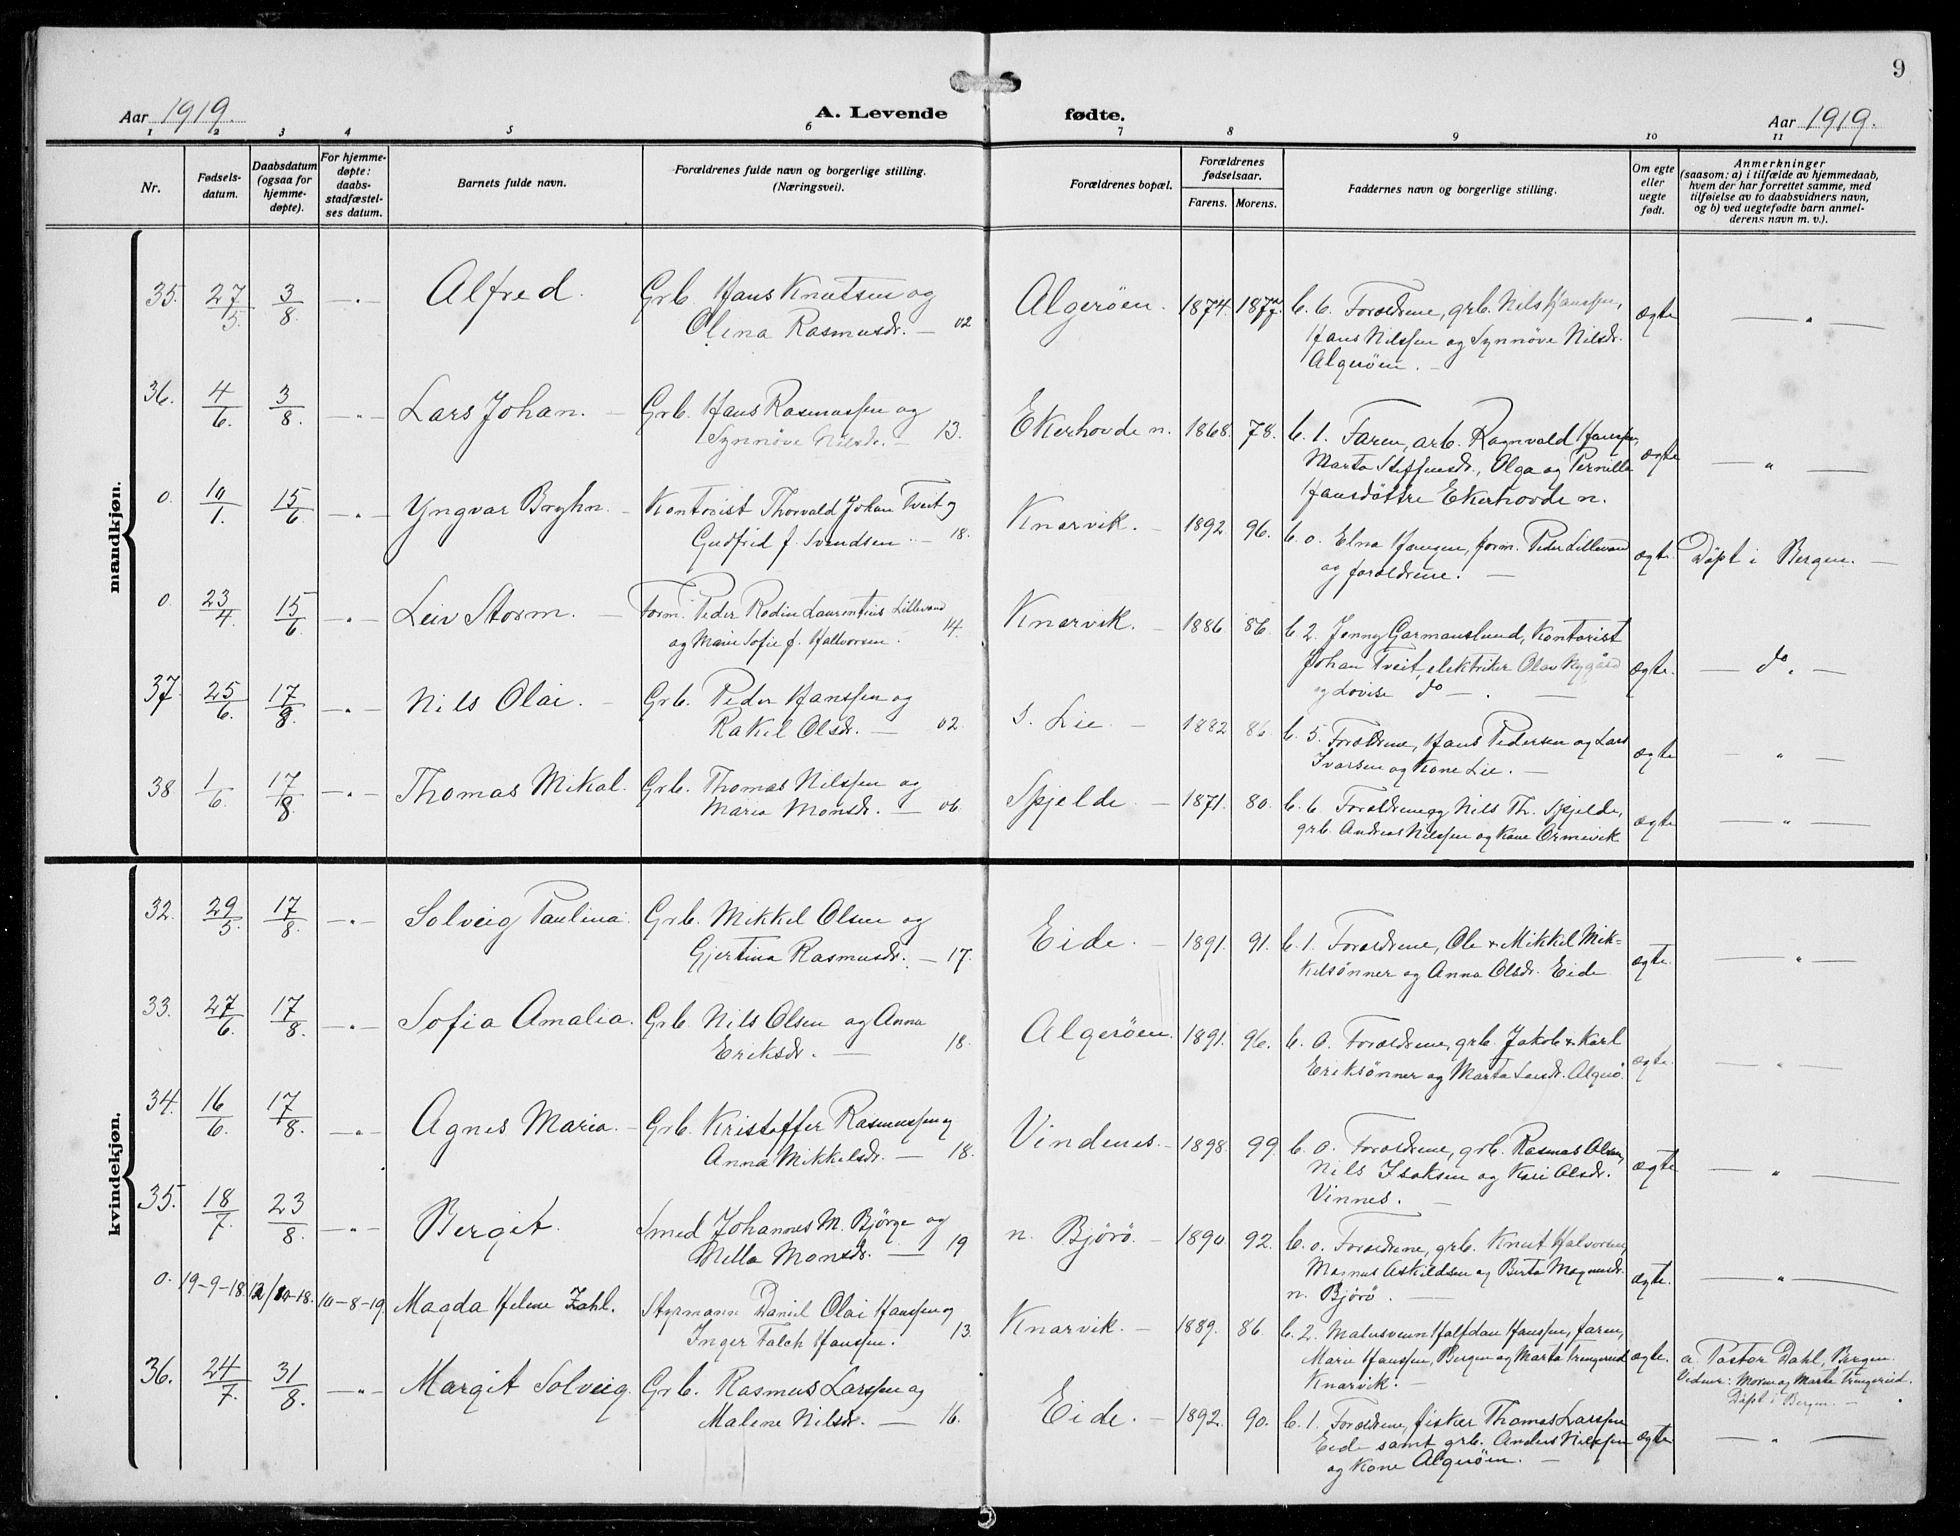 9
Aar 1919.
A. Levende fødte.
Aar 1919.
1 2 3 4 5 6 7 8 9 10 11
Nr.
Fødsels-
datum.
Daabsdatum
(ogsaa for
hjemme-
døpte).
For hjemme-
døpte:
daabs-
stadfæstel-
ses datum.
Barnets fulde navn.
Forældrenes fulde navn og borgerlige stilling.
(Næringsvei).
Forældrenes bopæl.
Forældrenes
fødselsaar.
Farens. Morens.
Faddernes navn og borgerlige stilling.
Om egte
eller
uegte
født.
Anmerkninger
(saasom: a) i tilfælde av hjemmedaab,
hvem der har forrettet samme, med
tilføielse av to daabsvidners navn,
og b) ved uegtefødte barn anmel-
derens navn m. v.).
mandkjøn.
35. 27/5. 3/8 —„— Alfred. Grb. Hans Knutsen og
Olena Rasmusdr. — 02
Algerøen. 1874. 1877. b. 6. Forældrene, grb. Nils Hanssen,
Hans Nilssen og Synnøve Nilsdr.
Algerøen. —
ægte — „ —
36. 4/6. 3/8. —„— Lars Johan. — Grb. Hans Rasmussen og
Synnøve Nilsdr. — 13.
Ekerhovde n. 1868. 78. b. 1. Faren, arb. Ragnvald Hanssen,
Marta Steffensdr., Olga og Pernille
Hansdøttre Ekerhovde n.
ægte — „ —
0. 19/1. 15/6 —„— Yngvar Bryhn. — Kontorist Thorvald Johan Tveit og
Gudfrid f. Svendsen. — 18.
Knarvik. — 1892 96. b. 0. Elna Haugen, form. Peder Lillevand
og forældrene. —
ægte. Døpt i Bergen. —
0. 23/4. 15/6. —„— Leiv Storm. — Form. Peder Rodin Laurentius Lillevand
og Marie Sofie f. Halvorsen. 14.
Knarvik. — 1886. 86. b. 2. Jenny Garmanslund, Kontorist
Johan Tveit, elektriker Olav Nygård
og Lovise do — . —
ægte. — do. —
37. 25/6. 17/8. —„— Nils Olai. — Grb. Peder Hanssen og
Rakel Olsdr. — 02.
s. Lie — 1882 86. b. 5. Forældrene, Hans Pedersen og Lars
Ivarsen og Kone Lie. —
ægte — „ —
38 1/6. 17/8. —„— Thomas Mikal. Grb. Thomas Nilssen og
Maria Monsdr. — 06.
Spjelde. — 1871. 80. b. 6 Forældrene og Nils Th. Spjelde,
grb. Andreas Nilssen og Kone Ormevik
ægte — „ —
kvindekjøn.
32. 29/5. 17/8. —„— Solveig Paulina. Grb. Mikkel Olsen og
Gjertina Rasmusdr. — 17.
Eide. — 1891. 91. b. 1. Forældrene, Ole & Mikkel Mik-
kelsønner og Anna Olsdr. Eide.
ægte. — „ —
33. 27/6. 17/8. —„— Sofia Amalia. Grb. Nils Olsen og Anna
Eriksdr. — 18.
Algerøen. 1891. 96. b. 0. Forældrene, grb. Jakob & Karl
Eriksønner og Marta Larsdr. Algerø.
ægte. — „ —
34. 16/6. 17/8. —„— Agnes Maria. — Grb. Kristoffer Rasmussen og
Anna Mikkelsdr. — 18.
Vindenes. — 1898. 99. b. 0. Forældrene, grb. Rasmus Olsen,
Nils Isaksen og Kari Olsdr.
Vinnes. —
ægte — „ —
35. 18/7. 23/8. —„— Bergit. Smed Johannes M. Bjørge og
Mella Monsdr. — 19
n. Bjørø. — 1890 92. b. 0. Forældrene, grb. Knut Halvorsen,
Magnus Askildsen og Berta Magnusdr.
n. Bjørø. —
ægte. — „ —
0. 19-9-18. 12/10-18. 10-8-19. Magda Helene Zahl. Styrmann Daniel Olai Hanssen og
Inger Falch Hanssen. 13.
Knarvik. — 1889. 86. b. 2. Malersvenn Halfdan Hanssen, faren,
Marie Hanssen, Bergen og Marta Tringereid
Knarvik. —
ægte. a. Pastor Dahl, Bergen.
Vidner: Moren og Marta Tringereid.
Døpt i Bergen. —
36. 24/7. 31/8. —„— Margit Solveig. Grb. Rasmus Larssen og
Malene Nilsdr. — 16.
Eide. — 1892. 90. b. 1. Forældrene, fisker Thomas Larssen
Eide samt grb. Anders Nilssen
og Kone Algerøen. —
ægte — „ —